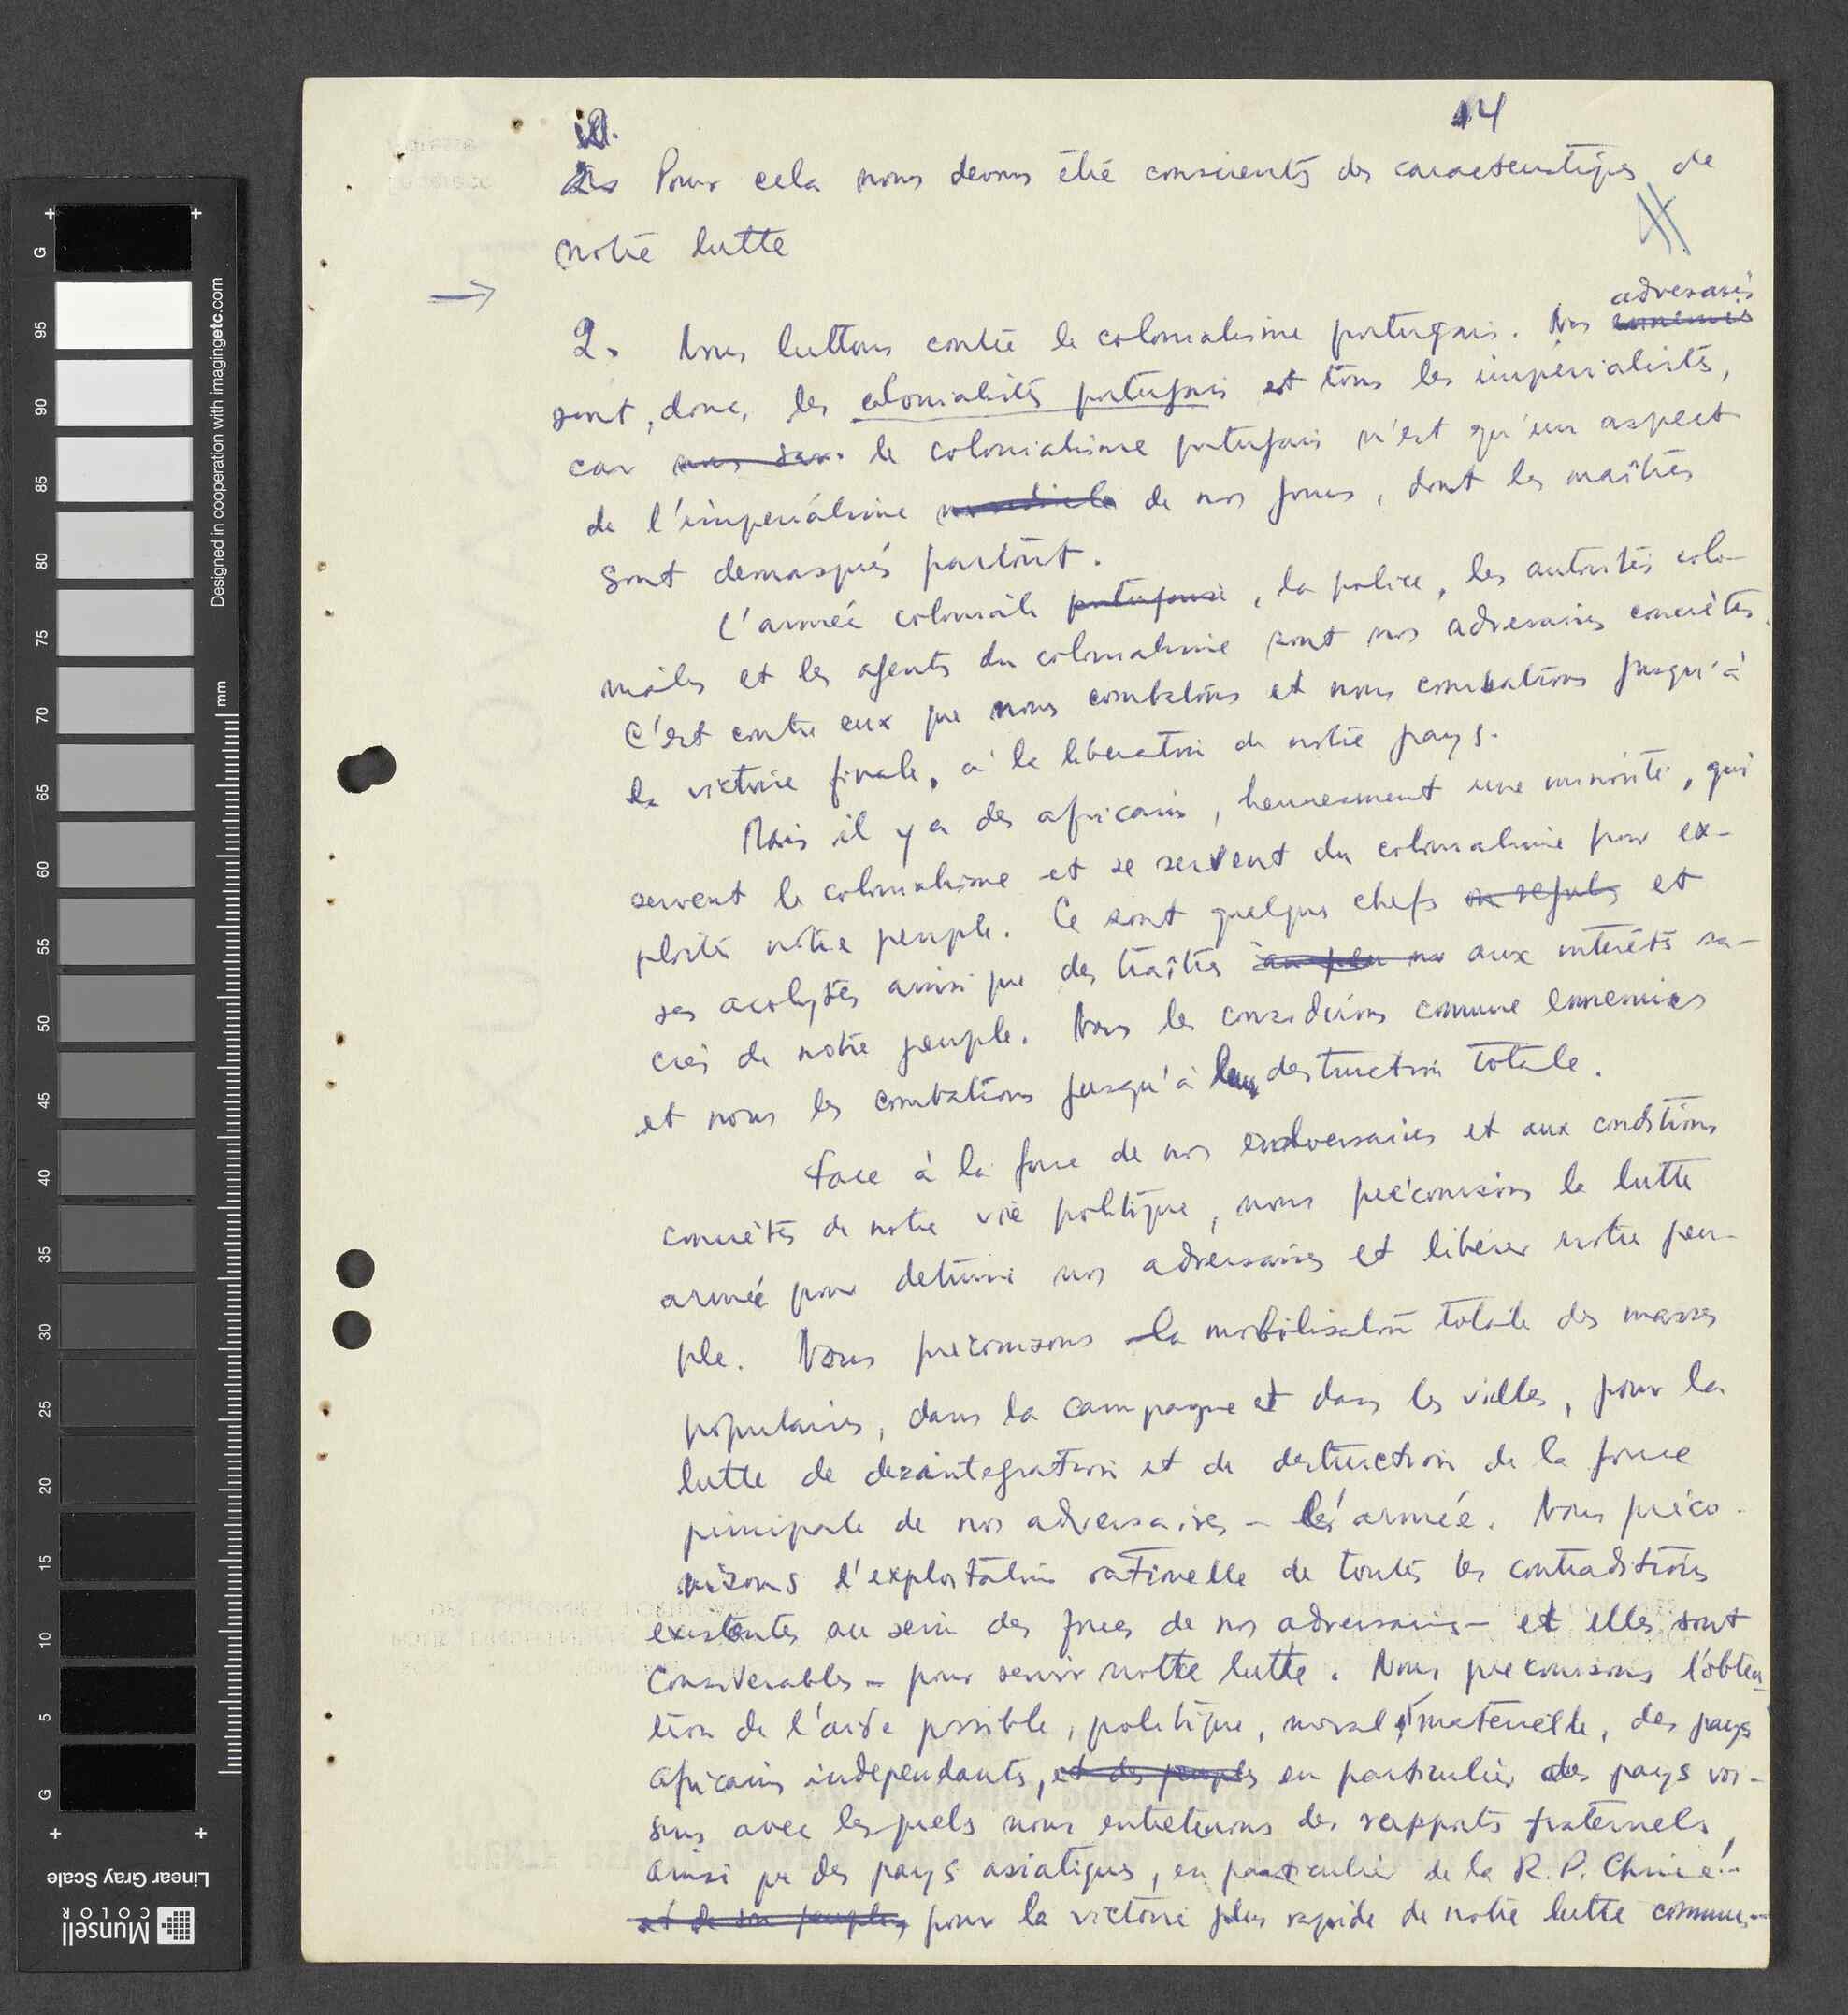 14
Pour cela nous devons être conscients des caracteristiques de
notre lutte
adversaires
2. Nous luttons contre le colonialisme portugais. Nos ennemis
sont, donc, les colonialistes portugais et tous les impérialistes,
car le colonialisme portugais n'est qu'un aspect
de l'impérialisme de nos jours, dont les maîtres
sont demasqués partout.
L'armée coloniale portugaise, la police, les autorités colo-
niales et les agents du colonialisme sont nos adversaires concrètes.
C'est contre eux que nous combatons et nous combatrons jusqu'à
la victoire finale, à la liberation de notre pays.
Mais il y a des africains, heureusement une minorité, qui
servent le colonialisme et se servent du colonialisme pour ex-
ploiter notre peuple. Ce sont quelques chefs et
ses acolytes ainsi que des traîtres aux interêts sa-
crés de notre peuple. Nous les considérons comme ennemies
et nous les combatrons jusqu'à leur destruction totale.
Face à la force de nos adversaires et aux conditions
concrètes de notre vie politique, nous préconisons la lutte
armée pour detruire nos adversaires et libérer notre peu-
ple. Nous preconisons la mobilisation totale des masses
populaires, dans la campagne et dans les villes, pour la
lutte de desintegration et de destruction de la force
principale de nos adversaires - l'armée. Nous préco-
nisons l'exploitation rationelle de toutes les contraditions
existentes au sein des forces de nos adversaires - et elles sont
considerables - pour servir notre lutte. Nous preconisons l'obten-
tion de l'aide possible, politique, moral et materielle, des pays
africains independants, et des peuples en particulier des pays voi-
sins avec lesquels nous entretenons des rapports fraternels,
ainsi que des pays asiatiques, en particulier de la R.P. Chine -
et de son peuple, pour la victoire plus rapide de notre lutte commune.-
Designed in cooperation with imagingetc.com
mm
G
95
90
85
80
75
70
65
60
55
50
45
40
35
30
25
20
15
10
5
G
Linear Gray Scale
Munsell
COLOR